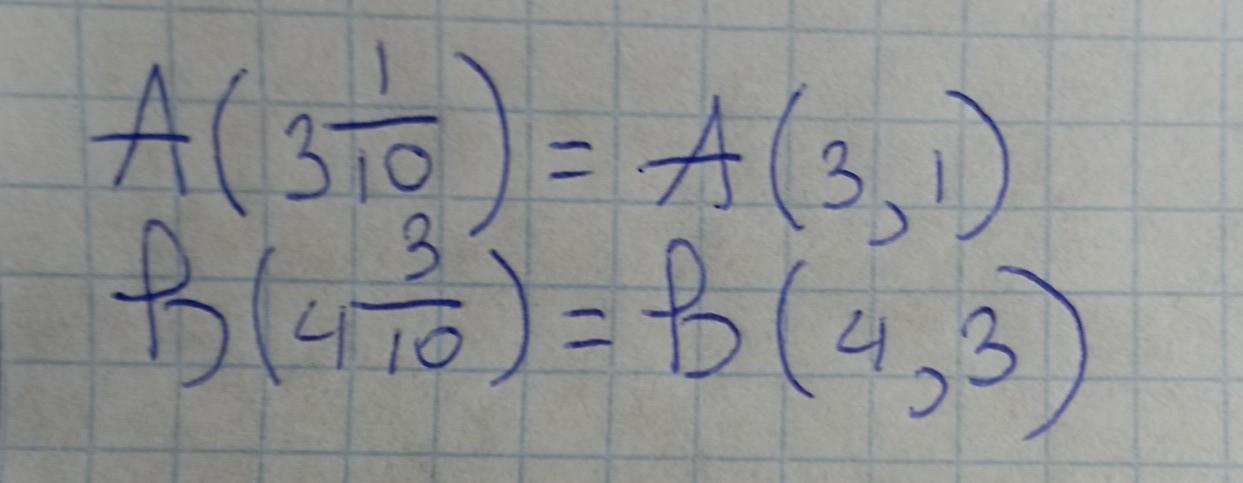 A(3 1/10) = A(3,1)
B(4 3/10) = B(4,3)